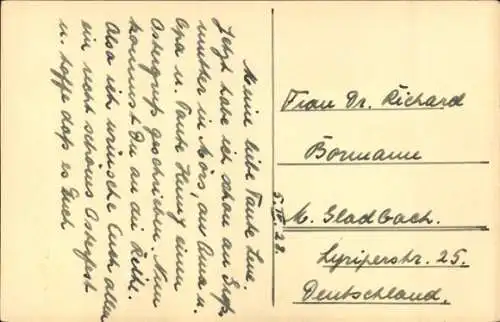 Meine liebe Tante Line.
Jetzt habe ich schon an Groß
mutter in Mörs, an Oma u.
Opa u. Tante Henny einen
Ostergruß geschrieben. Nun
kommst Du an die Reihe.
Also ich wünsche Euch allen
ein recht schönes Osterfest
u. hoffe daß es Euch
5. IV. 28.
Frau Dr. Richard
Bormann
M. Gladbach.
Lyriperstr. 25.
Deutschland.